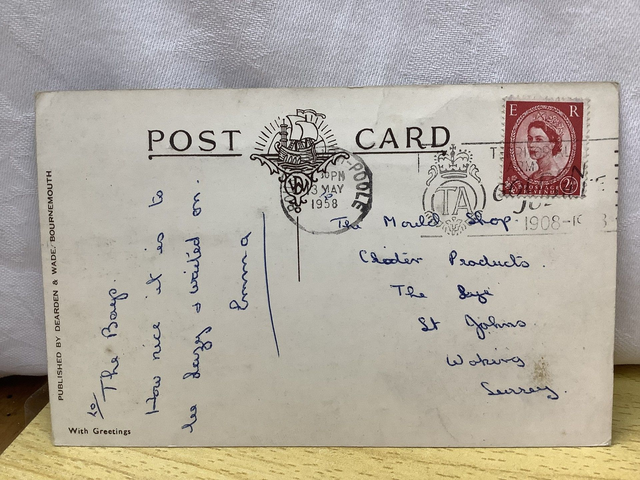 POST CARD
PUBLISHED BY DEARDEN & WADE, BOURNEMOUTH
With Greetings
to The Boys.
How nice it is to
be lazy & waited on.
Emma
E R
POSTAGE
2½
PM
3 MAY
1958
POOLE
TA
1908-19
The Mould Shop
Clater Products.
The
St Johns
Woking
Surrey.